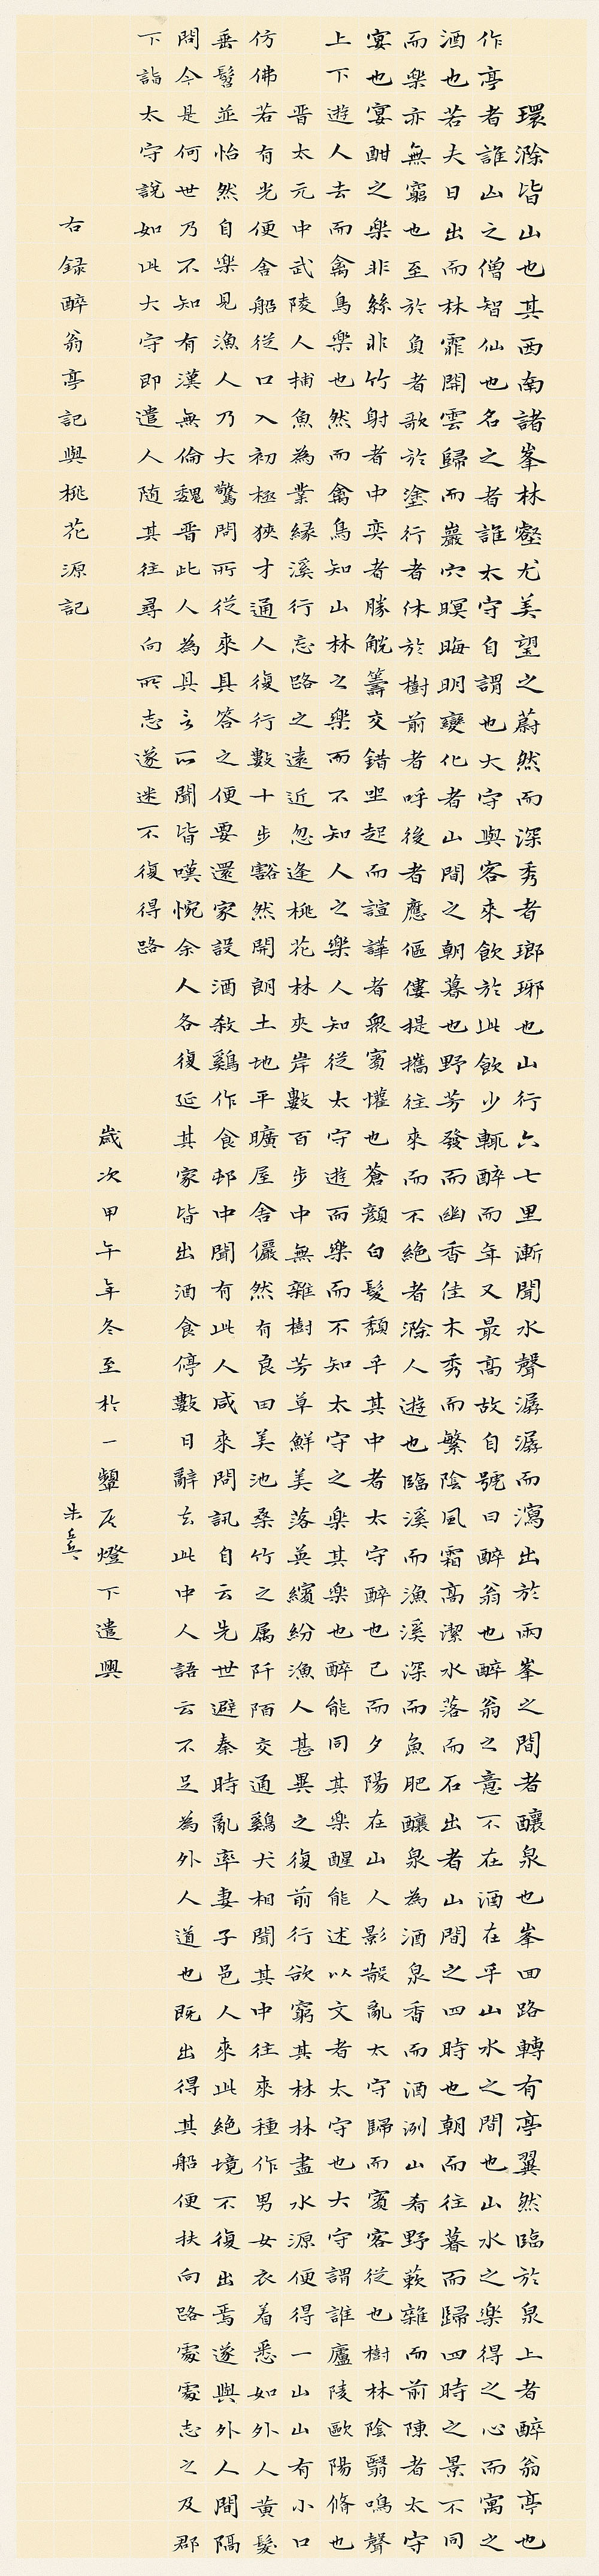 環滁皆山也其西南諸峯林壑尤美望之蔚然而深秀者瑯琊也山行六七里漸聞水聲潺潺而瀉出於兩峯之間者釀泉也峯回路轉有亭翼然臨於泉上者醉翁亭也
作亭者誰山之僧智仙也名之者誰太守自謂也大守與客來飲於此飲少輒醉而年又最高故自號曰醉翁也醉翁之意不在酒在乎山水之間也山水之樂得之心而寓之
酒也若夫日出而林霏開雲歸而巖穴暝晦明變化者山間之朝暮也野芳發而幽香佳木秀而繁陰風霜高潔水落而石出者山間之四時也朝而往暮而歸四時之景不同
而樂亦無窮也至於負者歌於塗行者休於樹前者呼後者應傴僂提攜往來而不絕者滁人遊也臨溪而漁溪深而魚肥釀泉為酒泉香而酒洌山肴野蔌雜而前陳者太守
宴也宴酣之樂非絲非竹射者中奕者勝觥籌交錯坐起而諠譁者眾賓懽也蒼顏白髮頹乎其中者太守醉也已而夕陽在山人影散亂太守歸而賓客從也樹林陰翳鳴聲
上下遊人去而禽鳥樂也然而禽鳥知山林之樂而不知人之樂人知從太守遊而樂而不知太守之樂其樂也醉能同其樂醒能述以文者太守也大守謂誰廬陵歐陽脩也
晋太元中武陵人捕魚為業緣溪行忘路之遠近忽逢桃花林夾岸數百步中無雜樹芳草鮮美落英繽紛漁人甚異之復前行欲窮其林林盡水源便得一山山有小口
仿佛若有光便舍船從口入初極狹才通人復行數十步豁然開朗土地平曠屋舍儼然有良田美池桑竹之属阡陌交通鷄犬相聞其中往來種作男女衣着悉如外人黄髮
垂髫並怡然自樂見漁人乃大驚問所從來具答之便要還家設酒殺鷄作食邨中聞有此人咸來問訊自云先世避秦時亂率妻子邑人來此絕境不復出焉遂與外人間隔
問今是何世乃不知有漢無倫魏晋此人為具言所聞皆嘆惋余人各復延其家皆出酒食停數日辭去此中人語云不足為外人道也既出得其船便扶向路處處志之及郡
下詣太守說如此大守即遣人随其往尋向所志遂迷不復得路
右錄醉翁亭記與桃花源記
歲次甲午年冬至於一瓦燈下遣興
朱